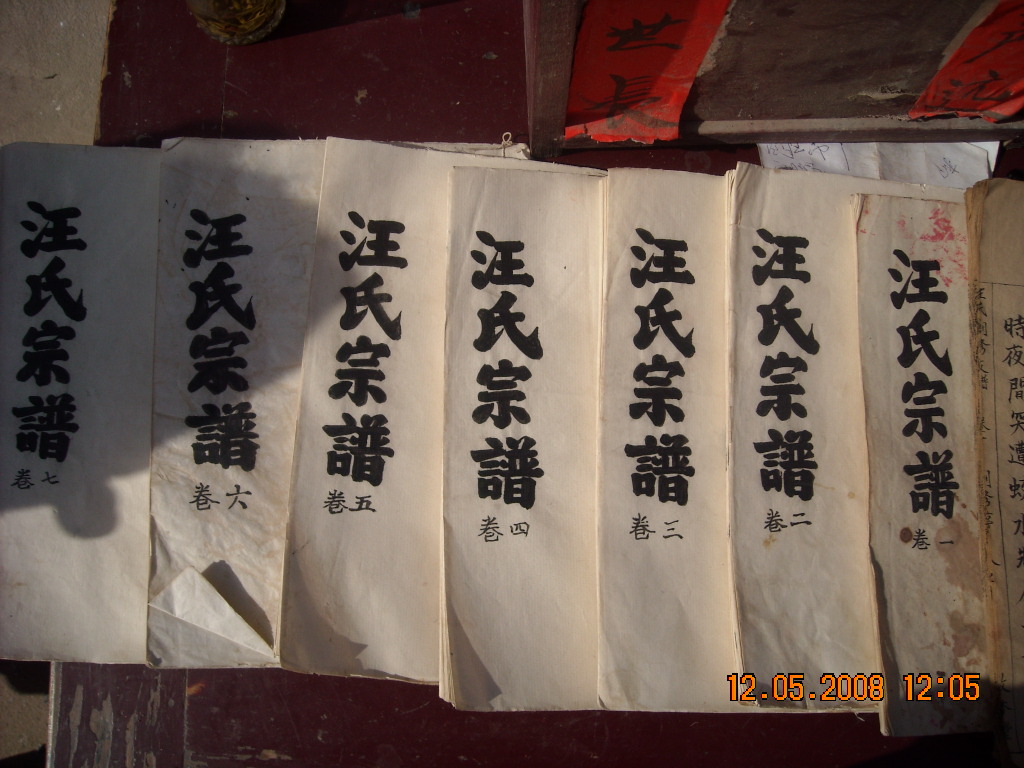 世長
汪氏宗譜
卷一
汪氏宗譜
卷二
汪氏宗譜
卷三
汪氏宗譜
卷四
汪氏宗譜
卷五
汪氏宗譜
卷六
汪氏宗譜
卷七
時夜間突遭
12.05.2008 12:05